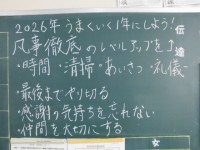 2026年うまくいく1年にしよう!
凡事徹底のレベルアップを!
・時間・清掃・あいさつ・礼儀
・最後までやり切る
・感謝の気持ちを忘れない
・仲間を大切にする
伝達